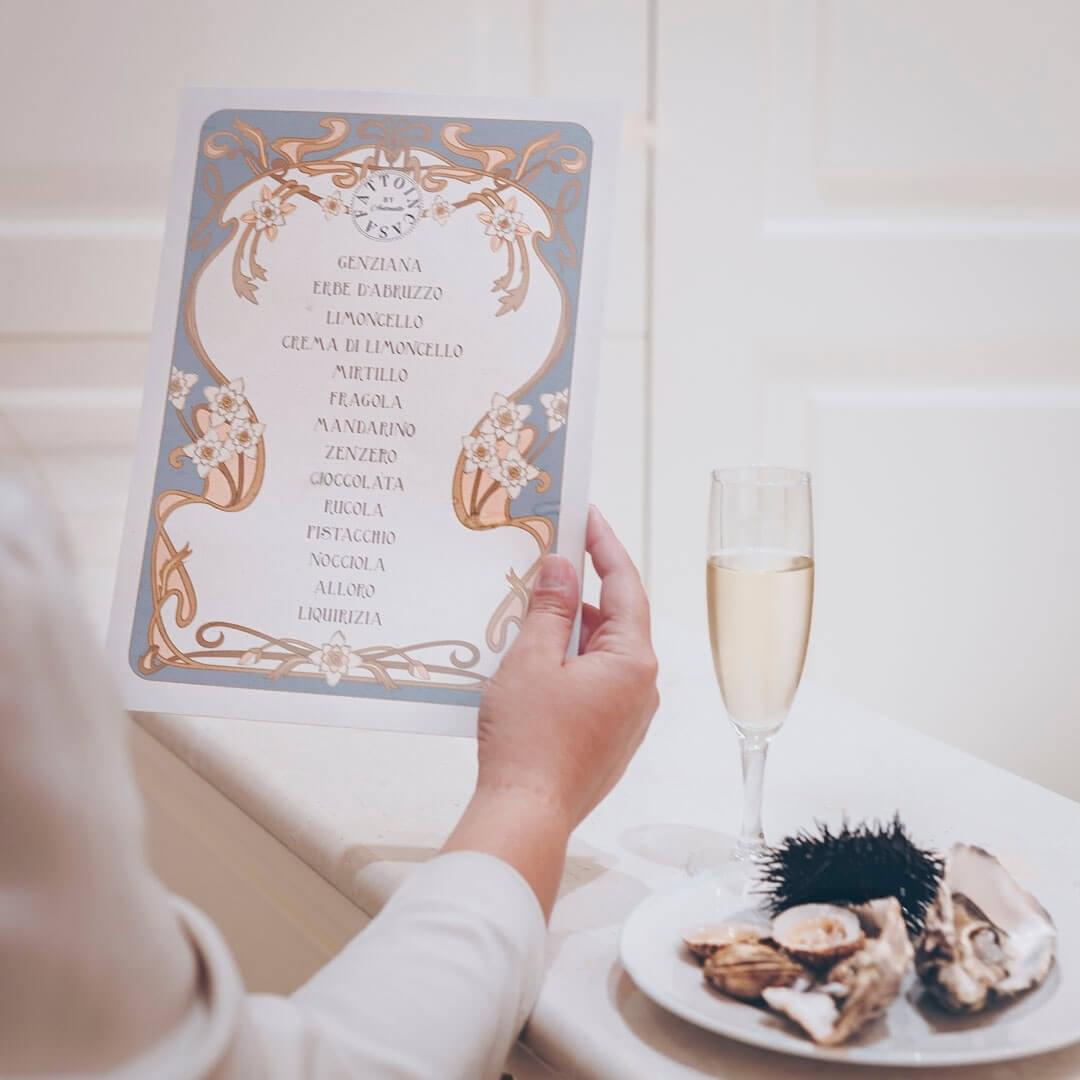 FATTOINCASA
BY
Antonietta
GENZIANA
ERBE D'ABRUZZO
LIMONCELLO
CREMA DI LIMONCELLO
MIRTILLO
FRAGOLA
MANDARINO
ZENZERO
CIOCCOLATA
RUCOLA
PISTACCHIO
NOCCIOLA
ALLORO
LIQUIRIZIA